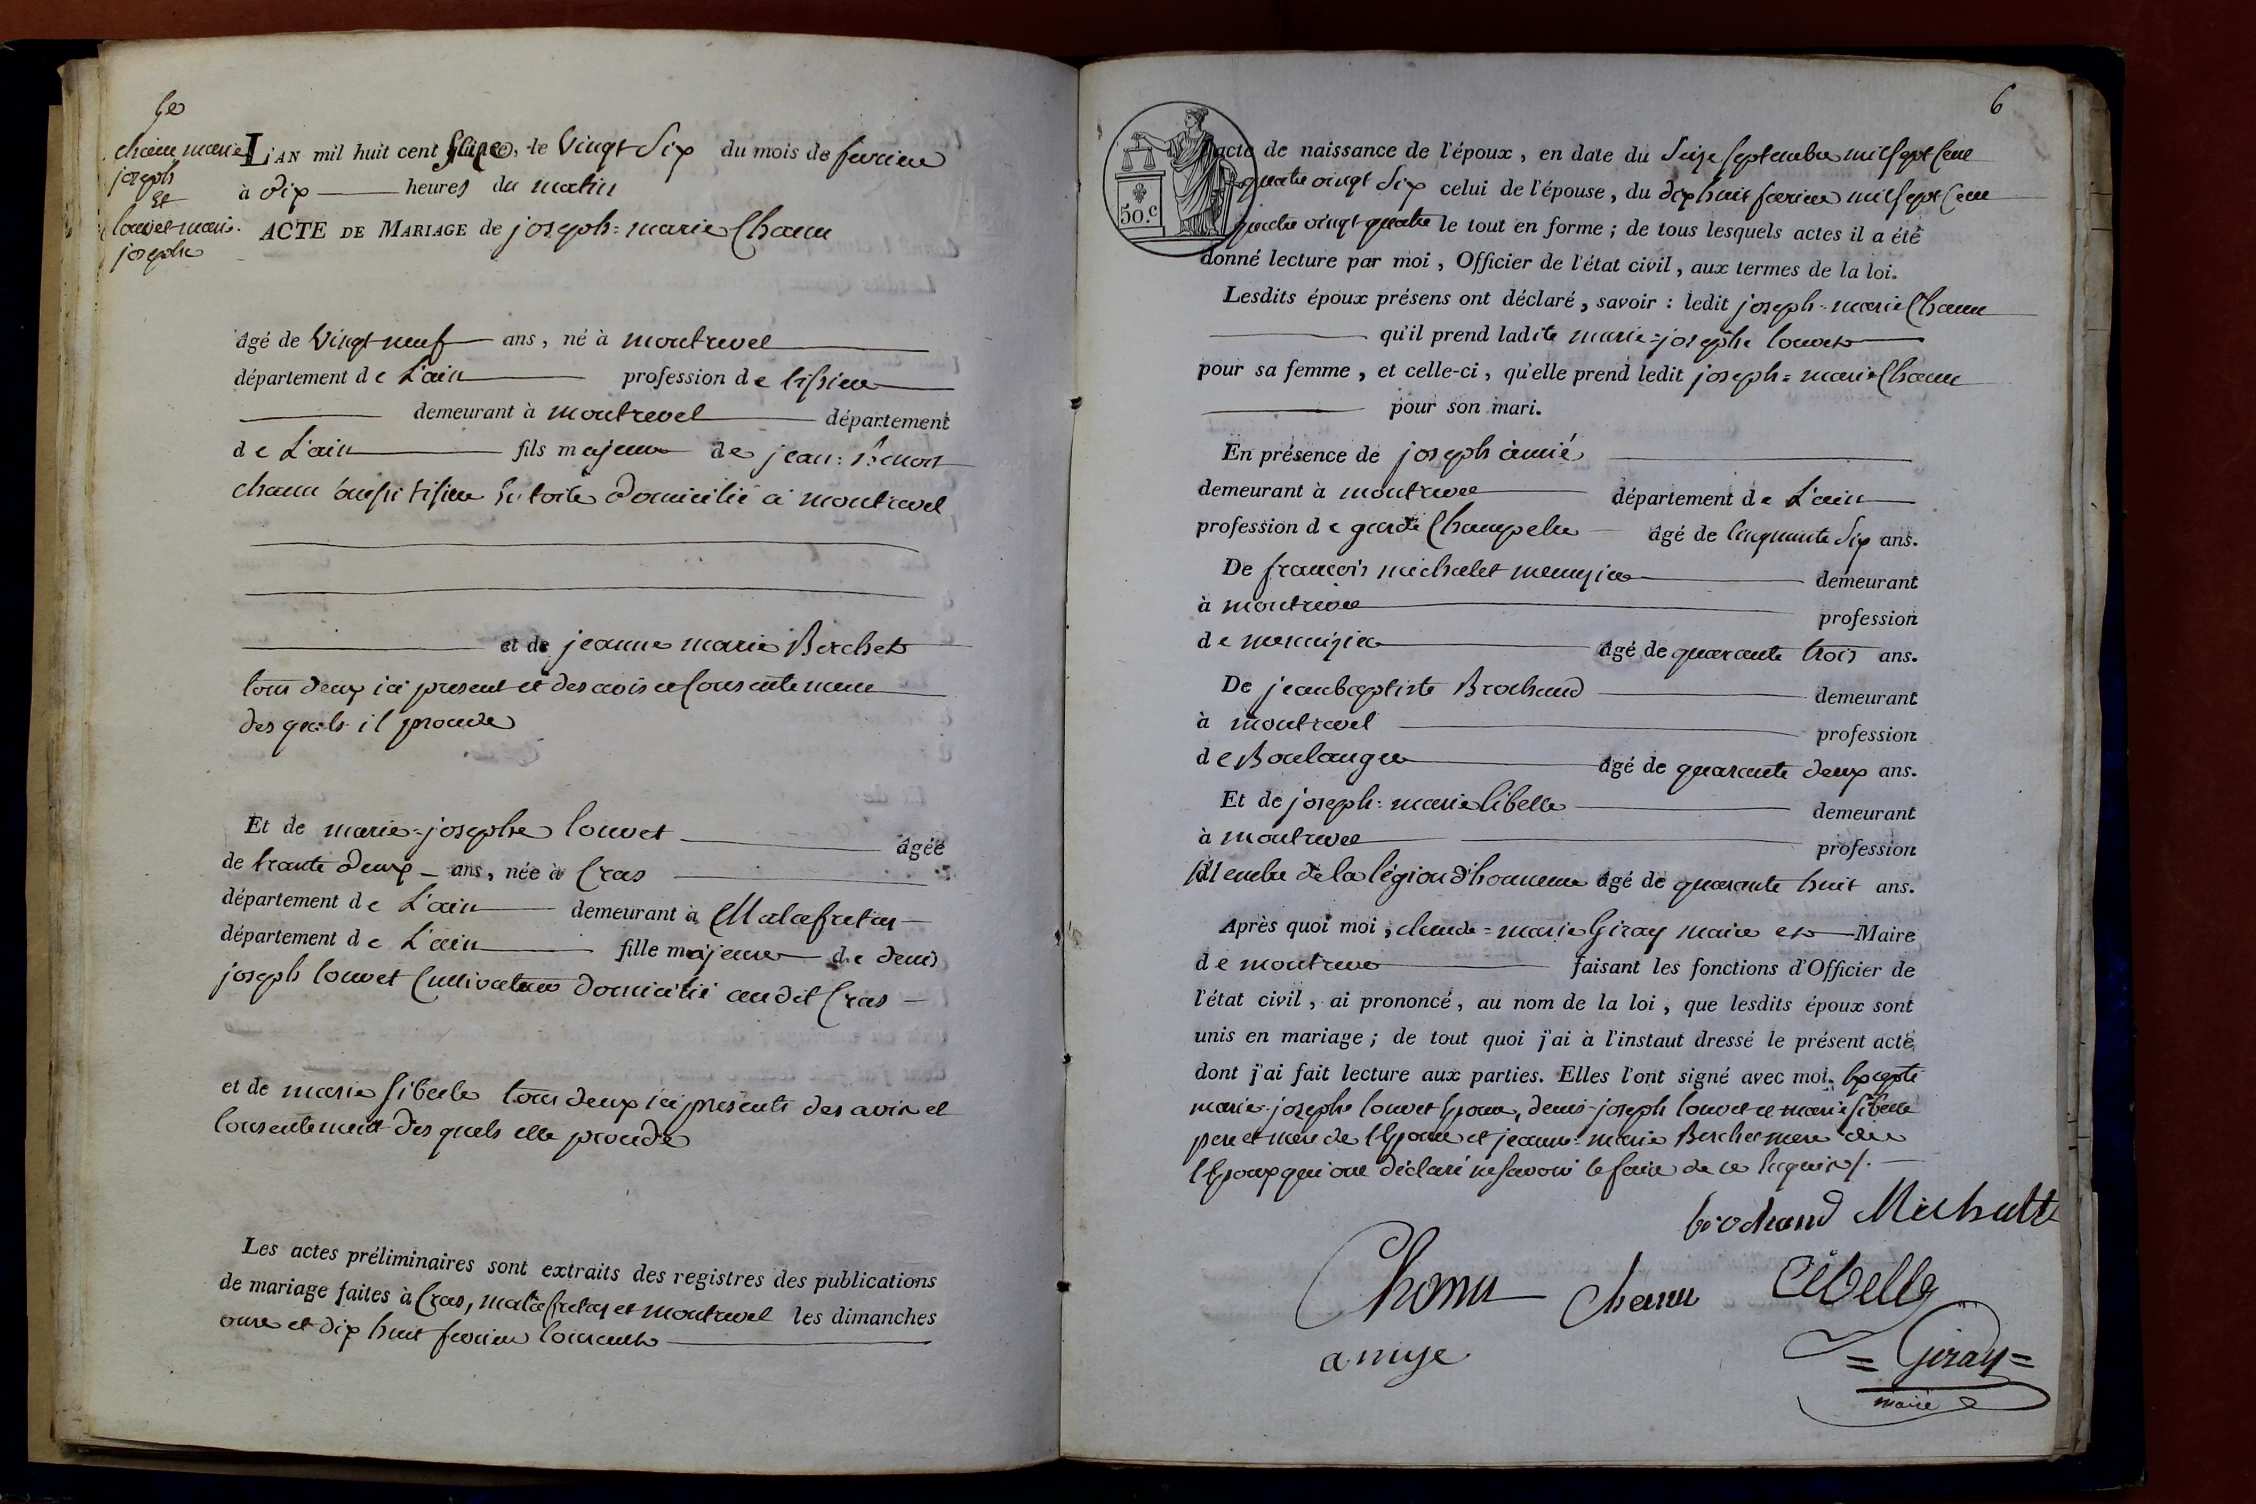 5e
chanu marie
joseph
Et
louvet marie
josephe
L'AN mil huit cent seize, le vingt six du mois de fevrier
à dix heures du matin
ACTE DE MARIAGE de joseph=marie Chanu
âgé de vingt neuf ans, né à montrevel
département de L'ain profession de tissier
demeurant à montrevel département
de L'ain fils majeur de jean=benoit
chanu aussi tissier en toile domicilié à montrevel
et de jeanne marie Berchet
tous deux ici present et des avis et consentement
des quels il procede
Et de marie=josephe louvet âgée
de trante deux ans, née à Cras
département de L'ain demeurant à Malafretas
département de L'ain fille majeure de denis
joseph louvet Cultivateur domicilié audit Cras
et de marie sibelle tous deux ici presents des avis et
consentement des quels elle procede
Les actes préliminaires sont extraits des registres des publications
de mariage faites à Cras, malafretas et montrevel les dimanches
onze et dix huit fevrier courrant
6
50.c
l'acte de naissance de l'époux, en date du seize septembre mil sept cent
quatre vingt six celui de l'épouse, du dix huit fevrier mil sept cent
quatre vingt quatre le tout en forme; de tous lesquels actes il a été
donné lecture par moi, Officier de l'état civil, aux termes de la loi.
Lesdits époux présens ont déclaré, savoir: ledit joseph=marie Chanu
qu'il prend ladite marie=josephe louvet
pour sa femme, et celle-ci, qu'elle prend ledit joseph=marie Chanu
pour son mari.
En présence de joseph amié
demeurant à montrevel département de L'ain
profession de garde Champetre âgé de cinquante six ans.
De francois michalet menuzier demeurant
à montrevel profession
de menuizier âgé de quarante trois ans.
De jean baptiste Brochand demeurant
à montrevel profession
de Boulanger âgé de quarante deux ans.
Et de joseph=marie libelle demeurant
à montrevel profession
Membre de la légion d'honneur âgé de quarante huit ans.
Après quoi moi, claude=marie Giray maire et Maire
de montrevel faisant les fonctions d'Officier de
l'état civil, ai prononcé, au nom de la loi, que lesdits époux sont
unis en mariage; de tout quoi j'ai à l'instaut dressé le présent acte
dont j'ai fait lecture aux parties. Elles l'ont signé avec moi. Excepté
marie=josephe louvet Epouse, denis=joseph louvet et marie sibelle
pere et mere de l'Epouse et jeanne=marie Berchet mere de
l'Epoux qui ont déclaré ne savoir le faire de ce requis.
brochand Michalet
Chanu chanu Cibelle
amye =Giray=
maire